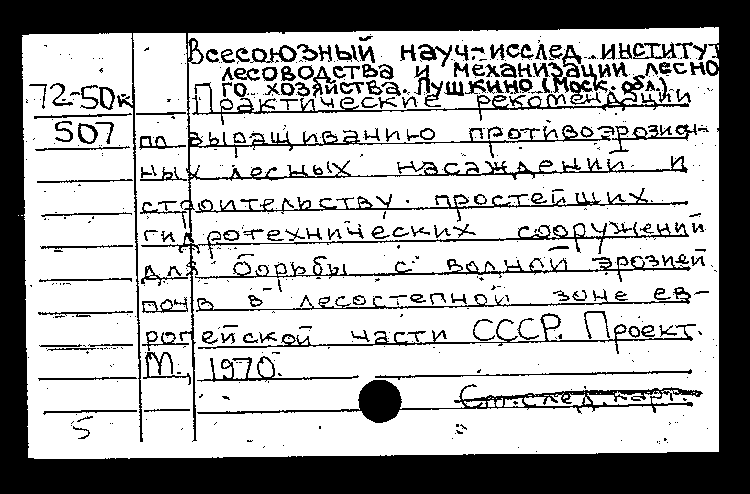 Всесоюзный науч.-исслед. институт
лесоводства и механизации лесно
го хозяйства. Пушкино (Моск. обл.)
72-50к Практические рекомендации
507 по выращиванию противоэрозион-
ных лесных насаждений и
строительству простейших
гидротехнических сооружений
для борьбы с водной эрозией
почв в лесостепной зоне ев-
ропейской части СССР. Проект.
М., 1970.
См. след. карт.
5